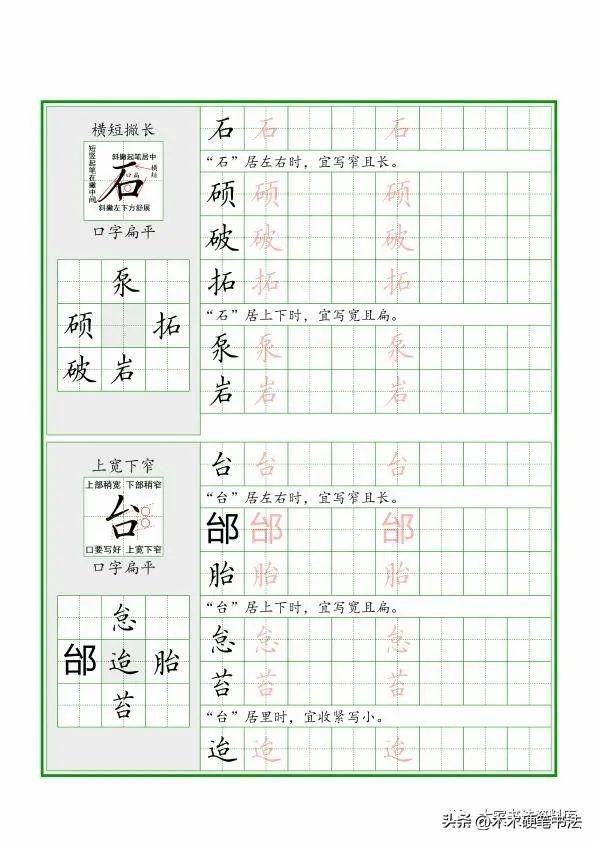 横短撇长
短竖起笔在撇中间
斜撇起笔居中
横短
口扁
石
斜撇左下方舒展
口字扁平
泵
硕 拓
破 岩
石 石 石
“石”居左右时，宜写窄且长。
硕 硕 硕
破 破 破
拓 拓 拓
“石”居上下时，宜写宽且扁。
泵 泵 泵
岩 岩 岩
上宽下窄
上部稍宽 下部稍窄
台
口要写好 上宽下窄
口字扁平
怠
邰 迨 胎
苔
台 台 台
“台”居左右时，宜写窄且长。
邰 邰 邰
胎 胎 胎
“台”居上下时，宜写宽且扁。
怠 怠 怠
苔 苔 苔
“台”居里时，宜收紧写小。
迨 迨 迨
头条 @木木硬笔书法